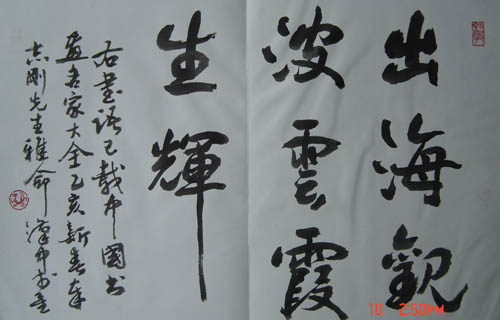 出海觀
波雲霞
生輝
右書語已載中國书
畫名家大全乙亥新春奉
志剛先生雅命 漢中
10 2:50PM